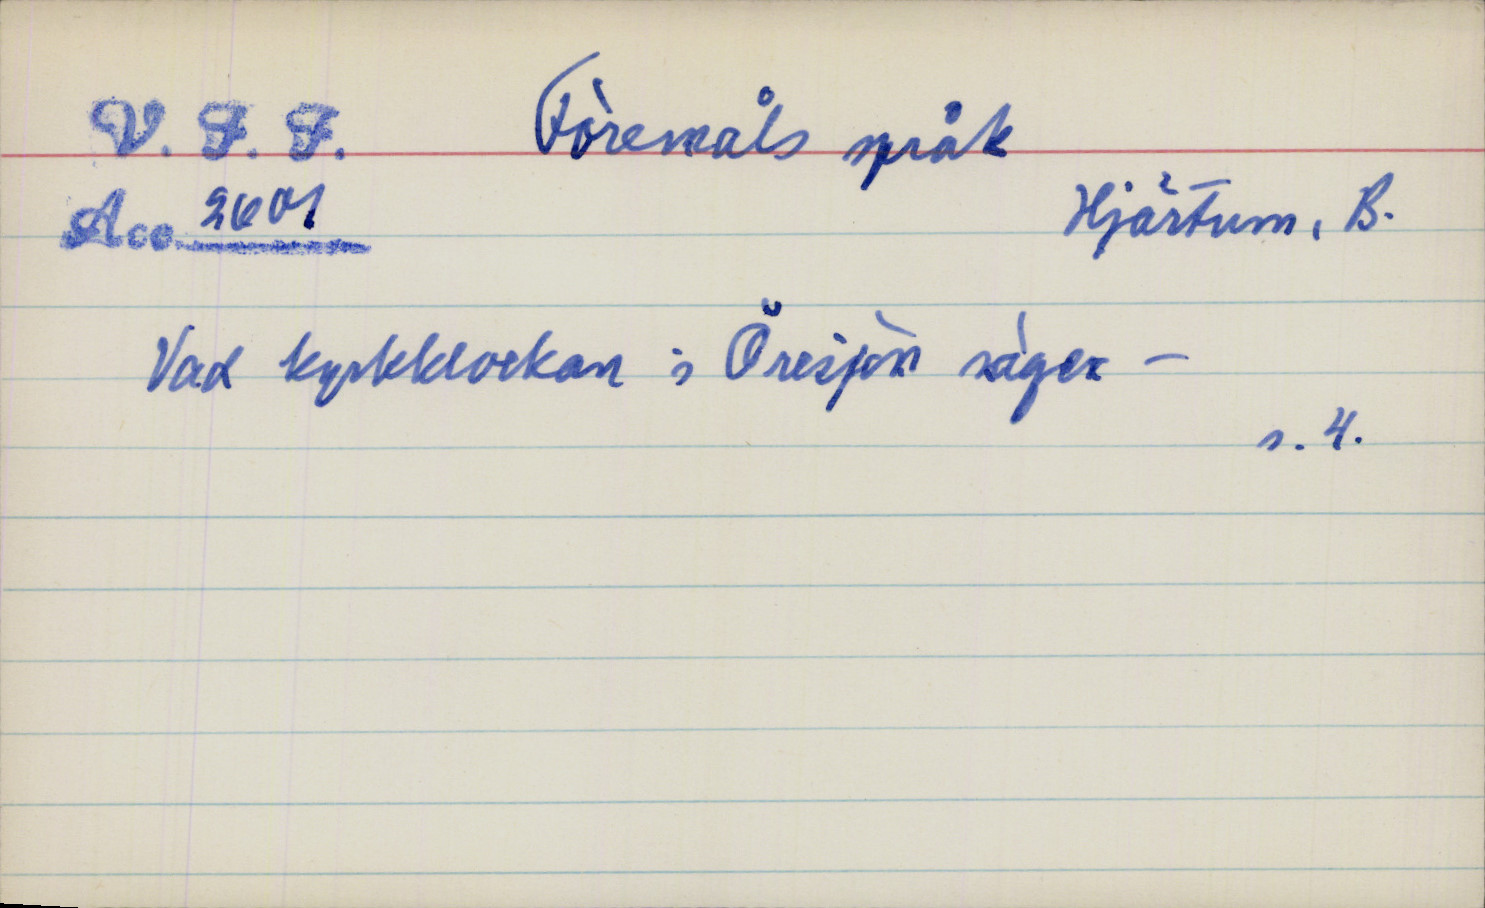 V. F. F. Föremåls språk
Acc. 2601 Hjärtum, B.
Vad kyrkklockan i Öresjön säger –
s. 4.